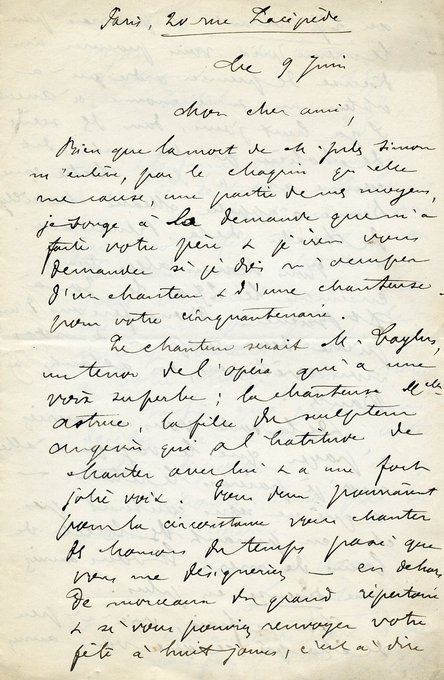 Paris, 20 rue Lacépède
Le 9 Juin
Mon cher ami,
Bien que la mort de M. Jules Simon
m'enlève, par le chagrin qu'elle
me cause, une partie de mes moyens,
je songe à la demande que m'a
faite votre père & je viens vous
demander si je dois m'occuper
d'un chanteur & d'une chanteuse
pour votre cinquantenaire.
Le chanteur serait M.
un tenor de l'opéra qui a une
voix superbe ; la chanteuse Melle
Astruc, la fille du sculpteur
angevin qui a l'habitude de
chanter avec lui & a une fort
jolie voix. Tous deux pourraient
pour la circonstance vous chanter
des chansons du temps passé que
vous me désigneriez — en dehors
de morceaux du grand répertoire
& si vous pouviez renvoyer votre
fête à huit jours, c'est à dire